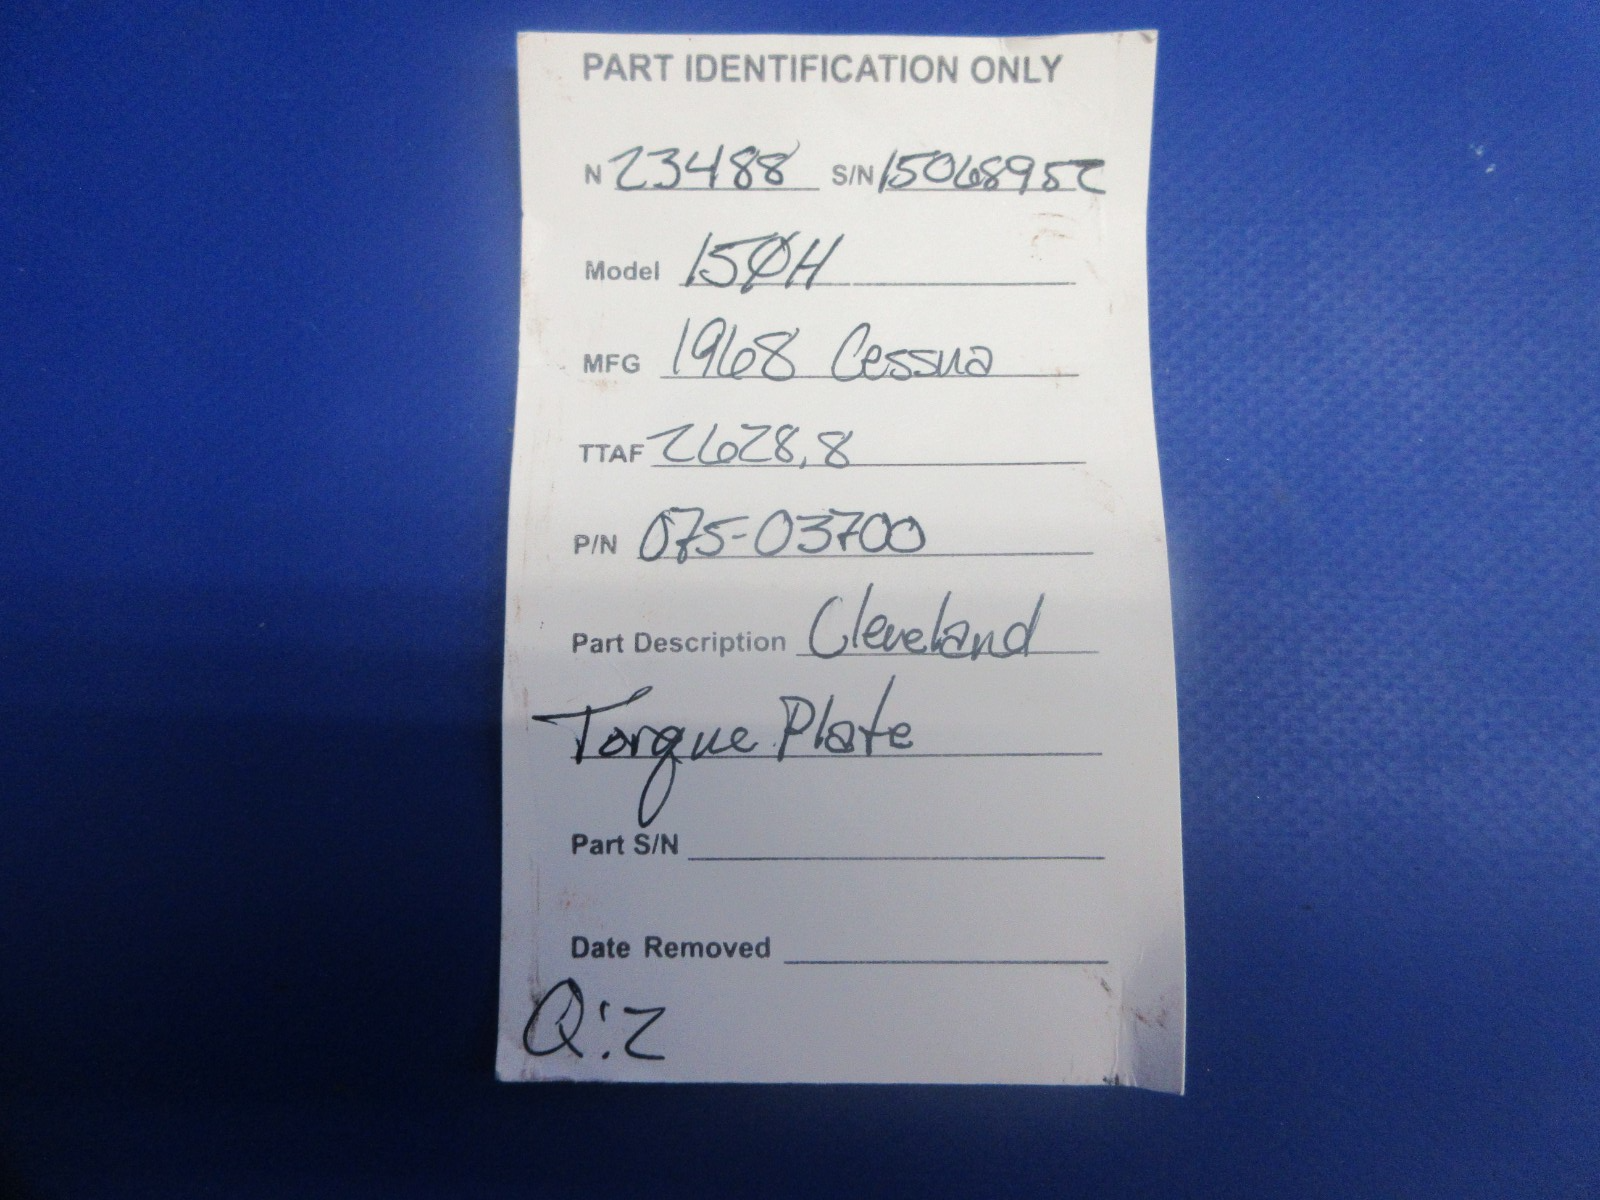 PART IDENTIFICATION ONLY
N 23488 S/N 15068952
Model 150H
MFG 1968 Cessna
TTAF 2628.8
P/N 075-03700
Part Description Cleveland
Torque Plate
Part S/N
Date Removed
Q:2